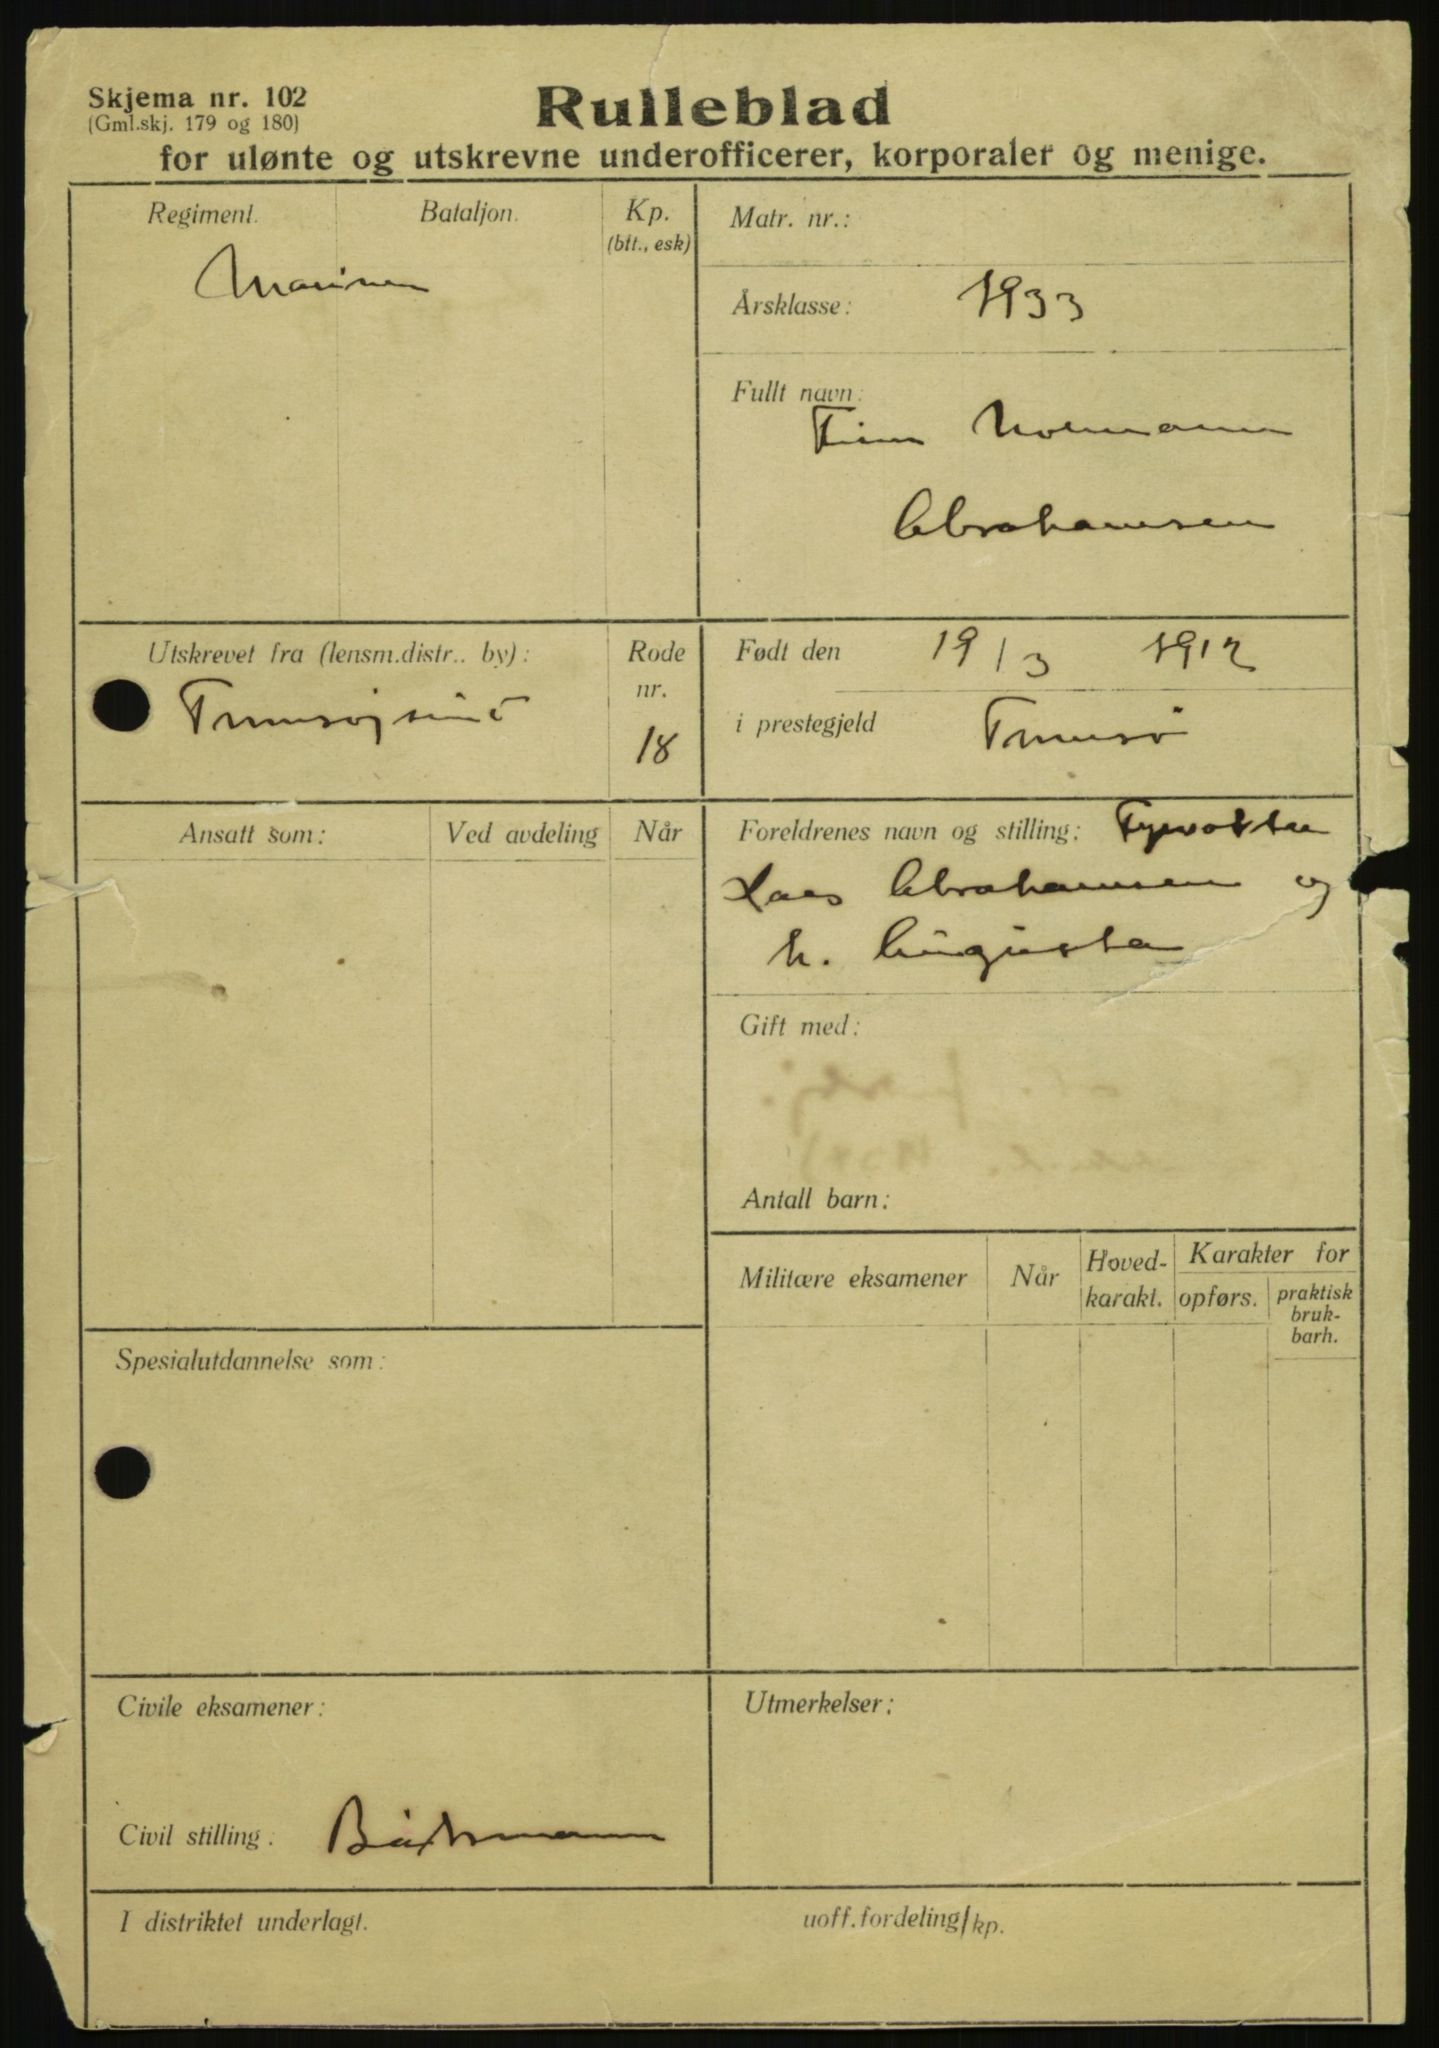 Skjema nr. 102
(Gml.skj. 179 og 180)
Rulleblad
for ulønte og utskrevne underofficerer, korporaler og menige.
Regiment.
Bataljon.
Kp.
(btt., esk)
Marinen
Matr. nr.:
Årsklasse: 1933
Fullt navn:
Finn Normann
Abrahamsen
Utskrevet fra (lensm.distr.. by):
Rode
nr.
18
Født den 19/3 1912
i prestegjeld Tromsø
Ansatt som:
Ved avdeling
Når
Foreldrenes navn og stilling: Fyrvokter
Abrahamsen og
h. Augusta
Gift med:
Antall barn:
Militære eksamener
Når
Hoved-
karakt.
Karakter for
opførs.
praktisk
bruk-
barh.
Spesialutdannelse som:
Civile eksamener:
Utmerkelser:
Civil stilling:
I distriktet underlagt.
uoff.fordeling/kp.